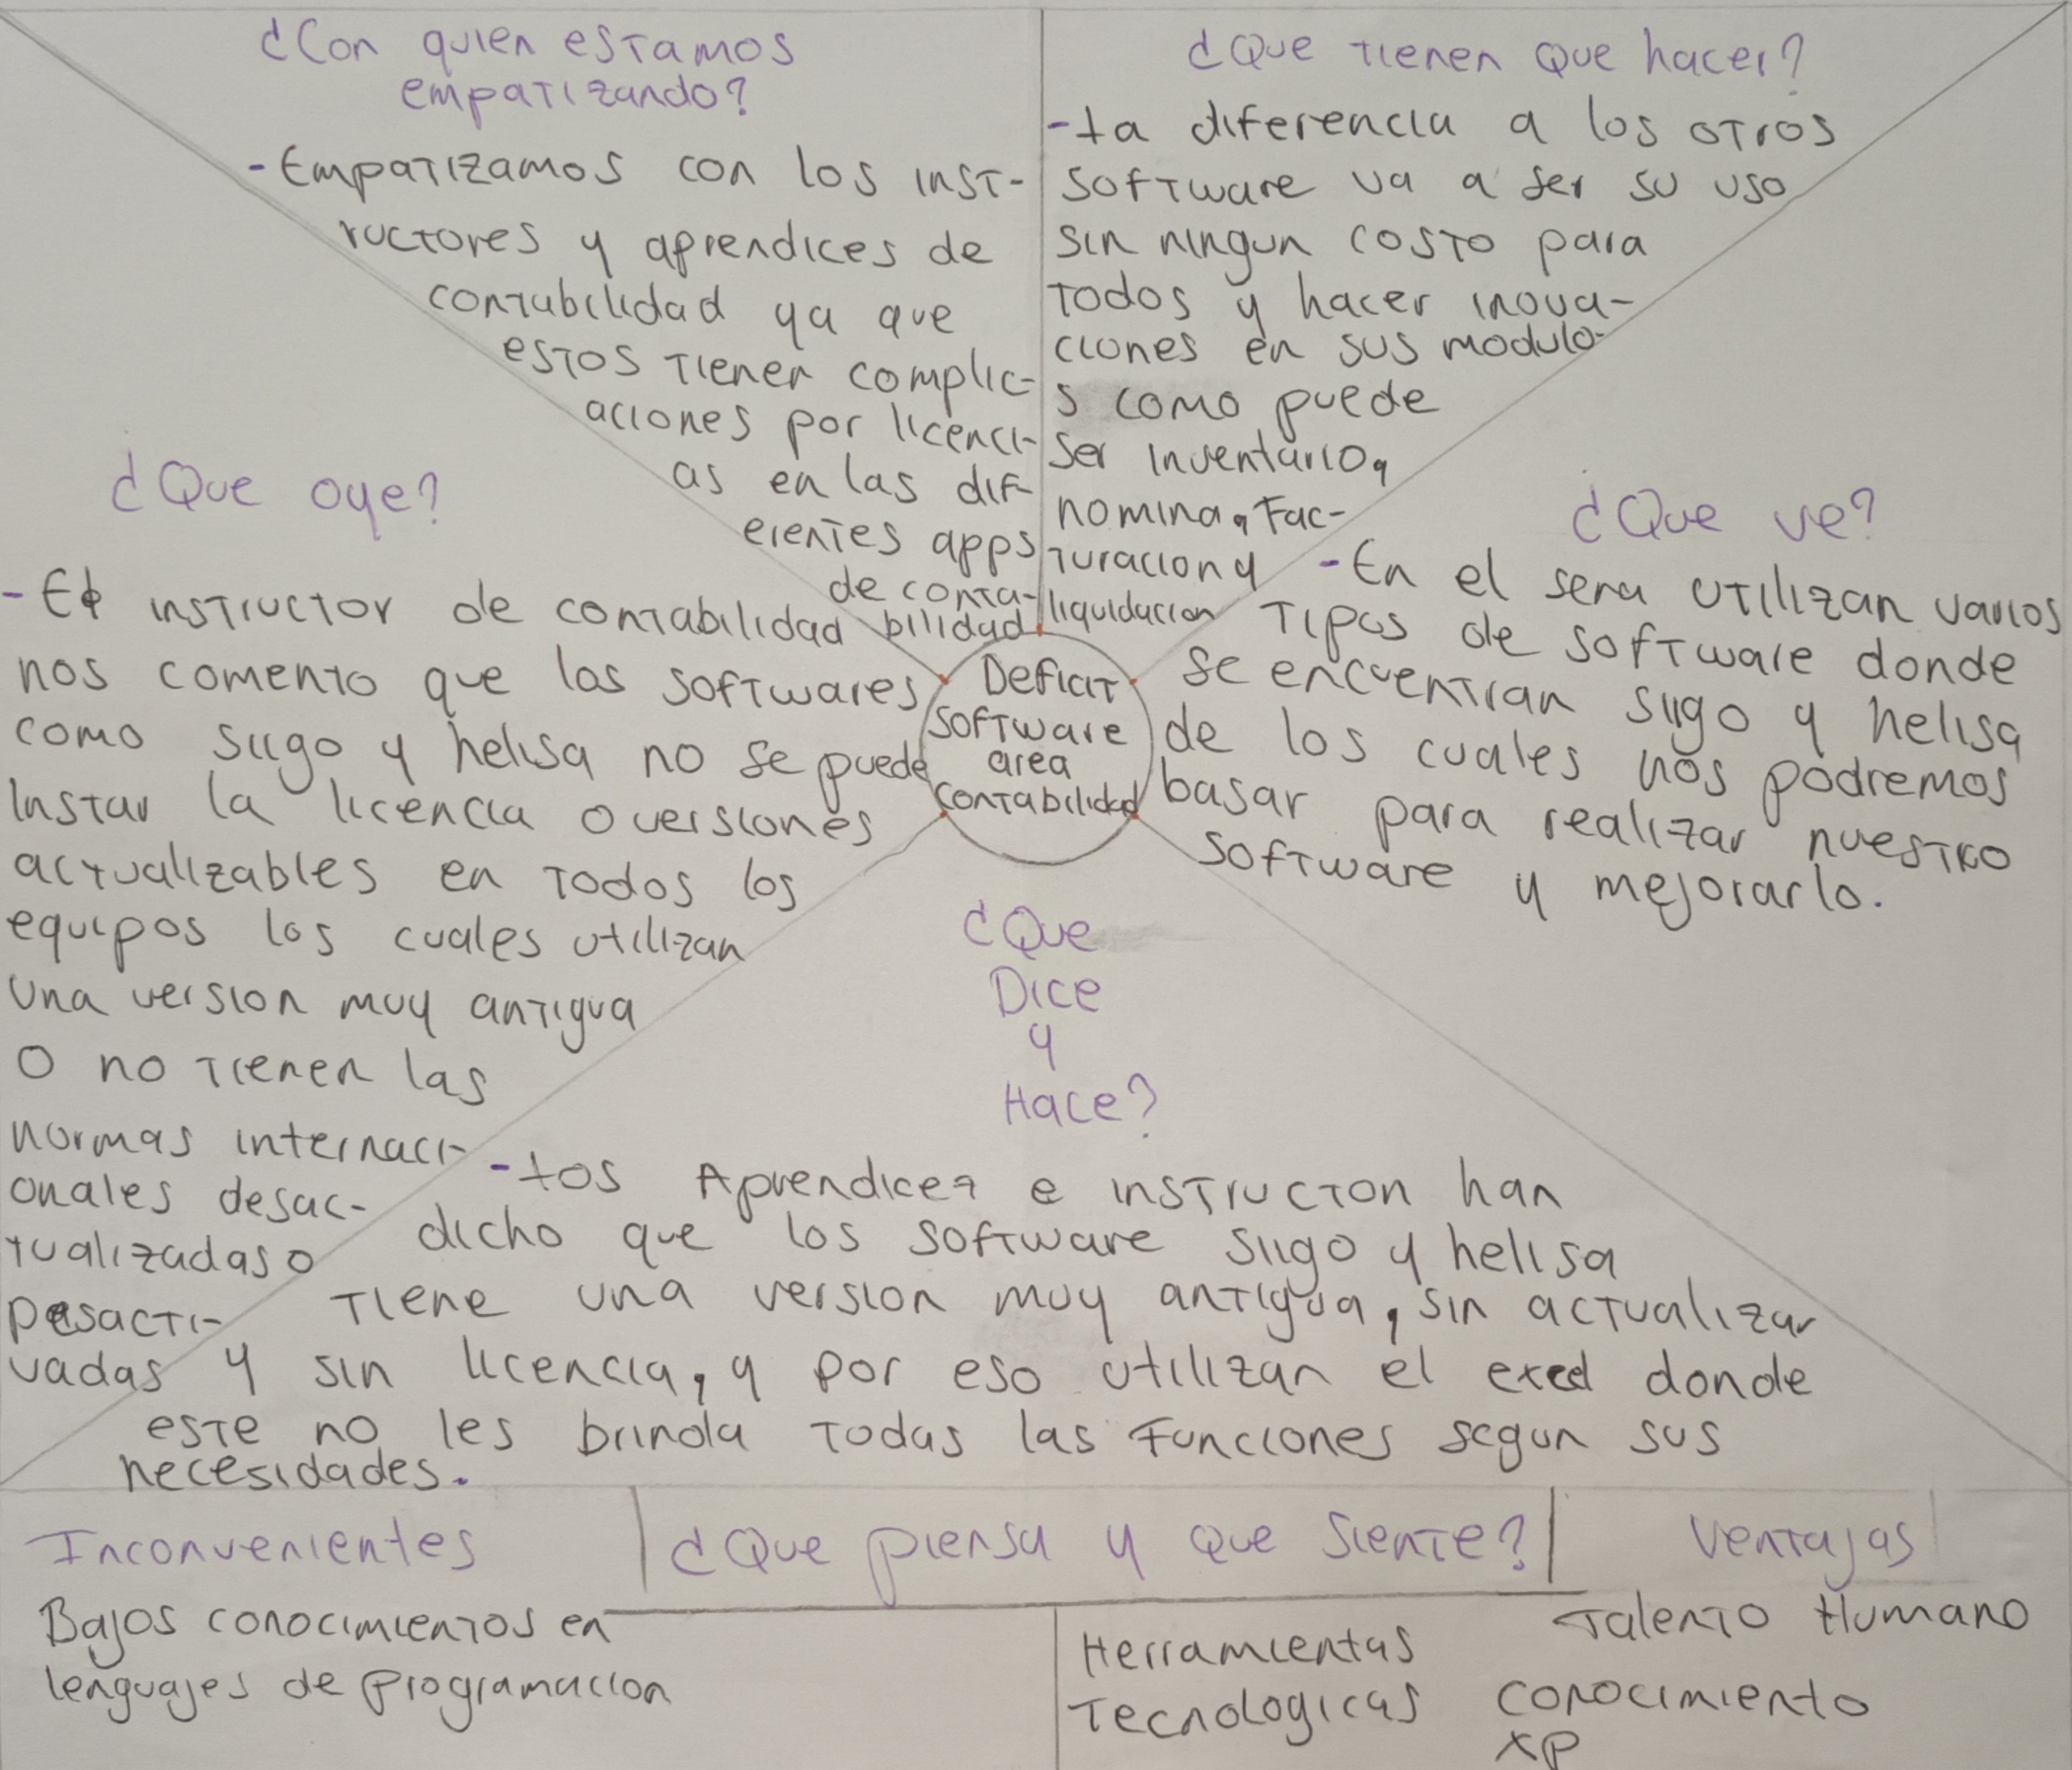 ¿Con quien estamos
empatizando?
- Empatizamos con los inst-
ructores y aprendices de
contabilidad ya que
estos tienen complic-
aciones por licenci-
as en las dif-
erentes apps
de conta-
bilidad
¿Que tienen que hacer?
- La diferencia a los otros
software va a ser su uso
sin ningun costo para
todos y hacer inova-
ciones en sus modulo-
s como puede
ser inventario,
nomina, fac-
turacion y
liquidacion
¿Que oye?
- El instructor de contabilidad
nos comento que los softwares
como siigo y helisa no se puede
instar la licencia o versiones
actualizables en todos los
equipos los cuales utilizan
una version muy antigua
O no tienen las
normas internaci-
onales desac-
tualizadas o
Desacti-
vadas
Deficit
software
area
contabilidad
¿Que ve?
- En el sena utilizan varios
tipos de software donde
se encuentran siigo y helisa
de los cuales nos podremos
basar para realizar nuestro
software y mejorarlo.
¿Que
Dice
y
Hace?
- Los Aprendices e instructon han
dicho que los software siigo y helisa
tiene una version muy antigua, sin actualizar
y sin licencia, y por eso utilizan el exel donde
este no les brinda todas las funciones segun sus
necesidades.
Inconvenientes
Bajos conocimientos en
lenguajes de programacion
¿Que piensa y que siente?
Ventajas
Herramientas
Tecnologicas
Talento Humano
conocimiento
XP